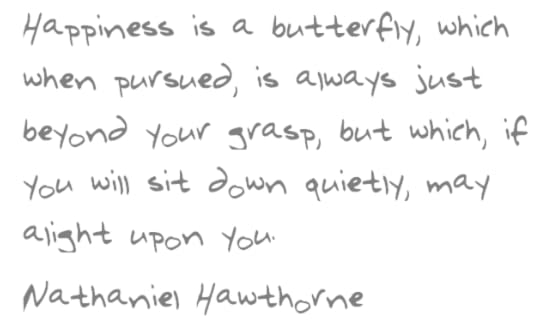 Happiness is a butterfly, which
when pursued, is always just
beyond your grasp, but which, if
you will sit down quietly, may
alight upon you.
Nathaniel Hawthorne